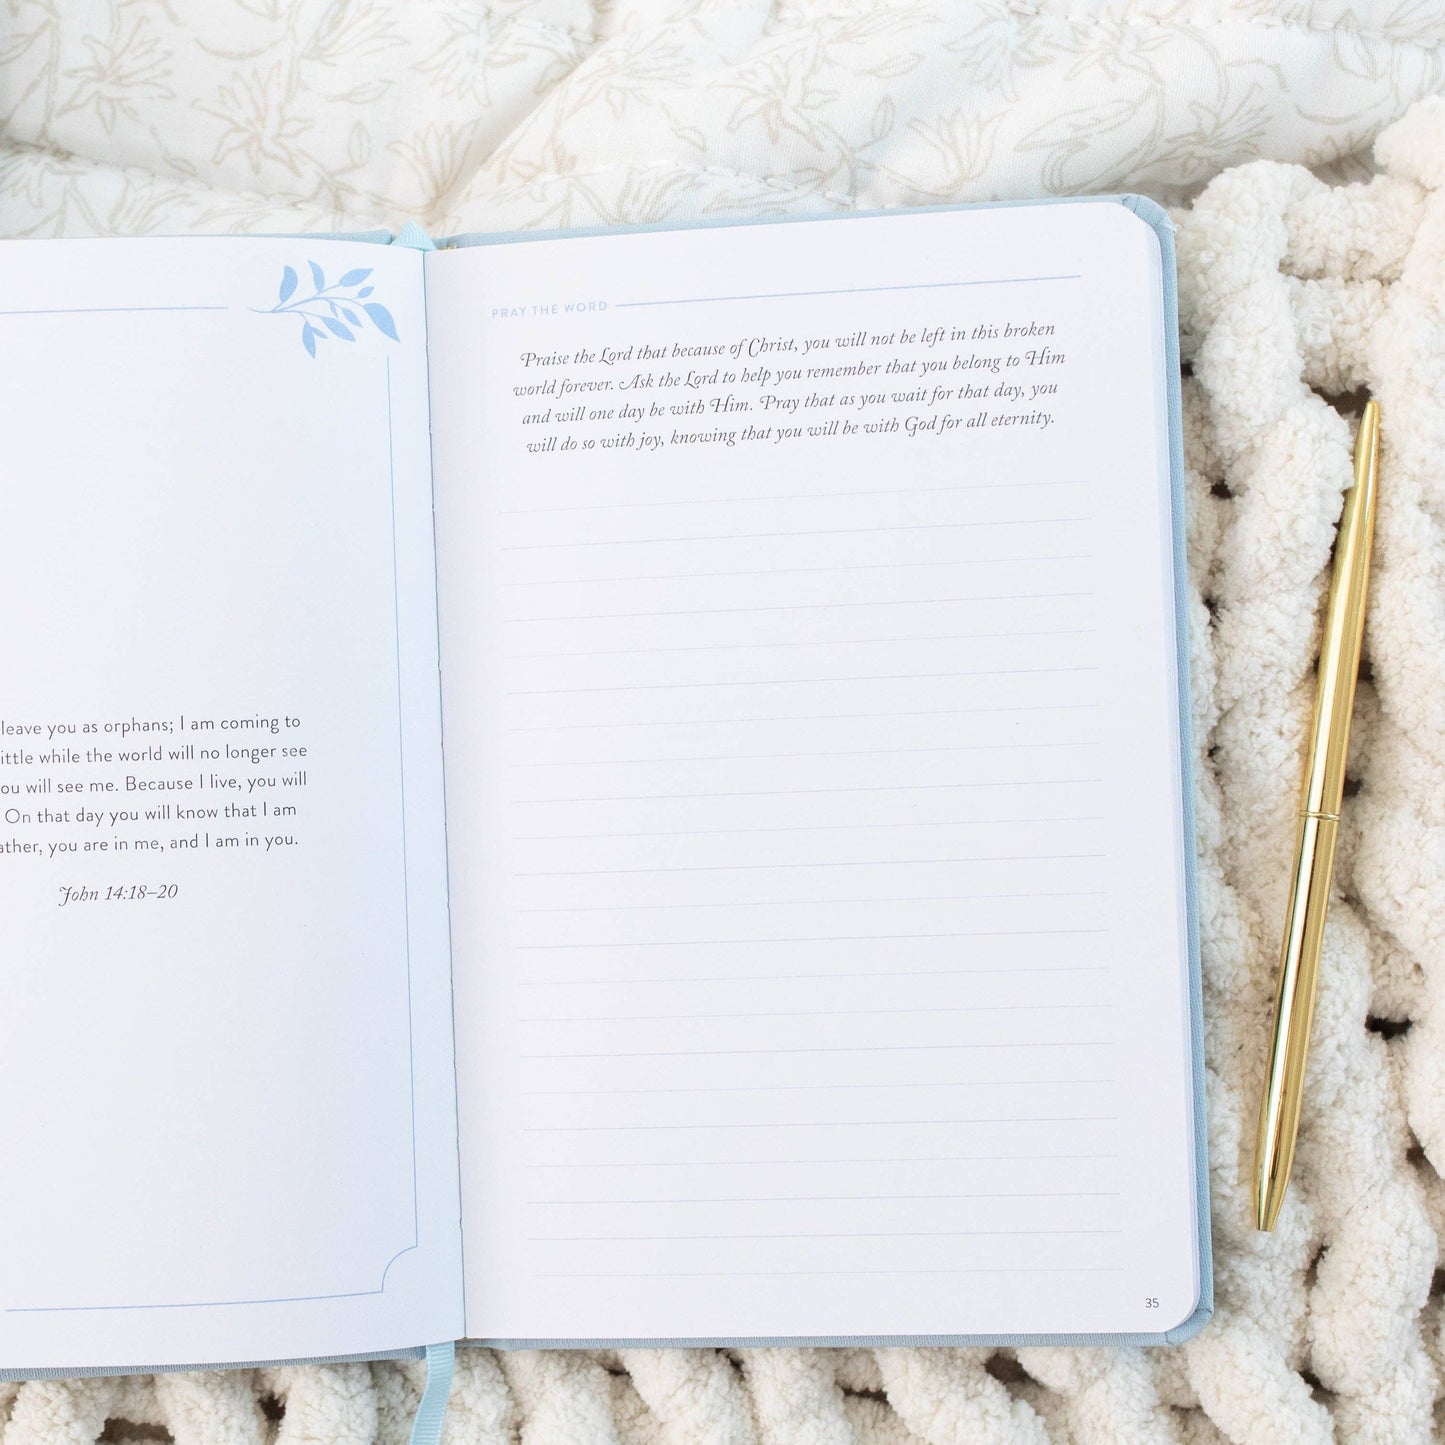 leave you as orphans; I am coming to
ittle while the world will no longer see
ou will see me. Because I live, you will
On that day you will know that I am
ather, you are in me, and I am in you.
John 14:18–20
PRAY THE WORD
Praise the Lord that because of Christ, you will not be left in this broken
world forever. Ask the Lord to help you remember that you belong to Him
and will one day be with Him. Pray that as you wait for that day, you
will do so with joy, knowing that you will be with God for all eternity.
35